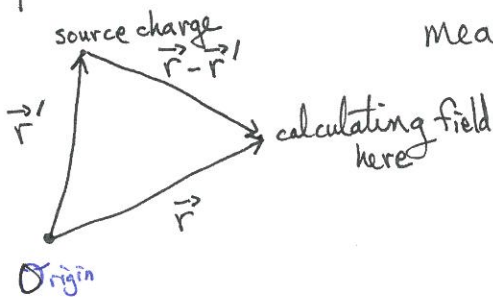 source charge
r⃗ - r⃗′
mea
r⃗′
calculating field
here
r⃗
Origin